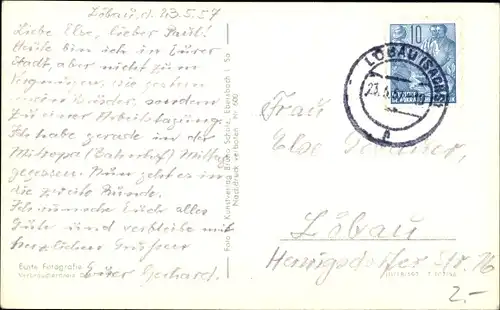 Löbau, d. 23.5.57
Liebe Else, lieber Paul!
Heute bin ich in Eurer
Stadt, aber nicht zum
Vergnügen, wie gestern
mein Bruder, sondern
zu einer Arbeitstagung.
Ich habe gerade in der
Mitropa (Bahnhof) Mittag
gegessen. Nun geht es in
die zweite Runde.
Ich wünsche Euch alles
Gute und verbleibe mit
herzlichen Grüßen
Euer Gerhard.
Echte Fotografie
Foto u. Kunstverlag Bruno Scholz, Ebersbach i. Sa
Nachdruck verboten Nr. 600
10
LÖBAU (SACHS)
23.5.
Frau
Else
Löbau
Herwigsdorfer Str. 16
2.-